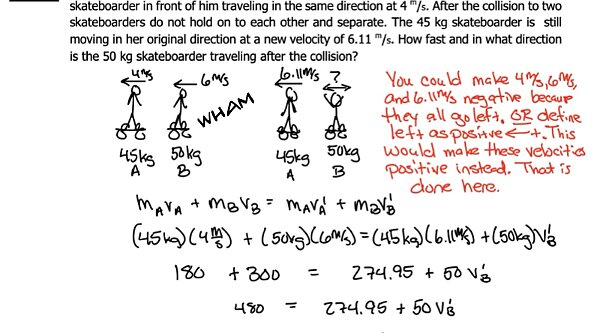 skateboarder in front of him traveling in the same direction at 4 m/s. After the collision to two
skateboarders do not hold on to each other and separate. The 45 kg skateboarder is still
moving in her original direction at a new velocity of 6.11 m/s. How fast and in what direction
is the 50 kg skateboarder traveling after the collision?
4m/s 6m/s 6.11m/s ?
WHAM
45kg 50kg 45kg 50kg
A B A B
You could make 4m/s, 6m/s,
and 6.11m/s negative because
they all go left. OR define
left as positive ← +. This
would make these velocities
positive instead. That is
done here.
mAvA + mBvB = mAvA' + mBvB'
(45kg)(4m/s) + (50kg)(6m/s) = (45kg)(6.11m/s) + (50kg)vB'
180 + 300 = 274.95 + 50 vB'
480 = 274.95 + 50 vB'